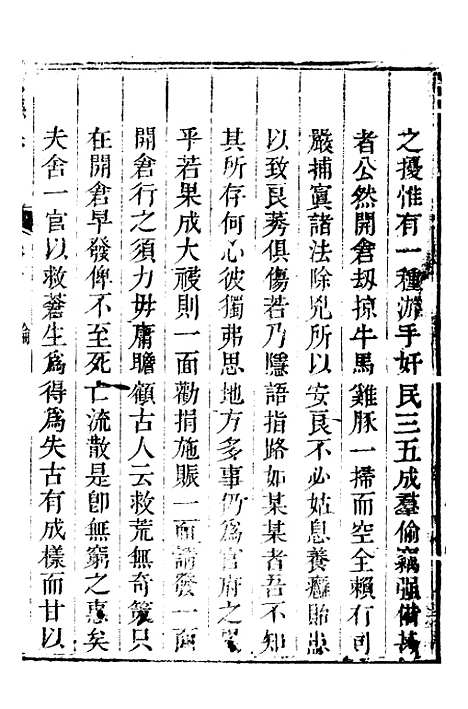 之擾惟有一種游手奸民三五成羣偷竊强借甚
者公然開倉刼掠牛馬雞豚一掃而空全賴有司
嚴捕寘諸法除兇所以安良不必姑息養癰貽患
以致良莠俱傷若乃隱語指路如某某者吾不知
其所存何心彼獨弗思地方多事仍爲官府之累
乎若果成大祲則一面勸捐施賑一面請發一面
開倉行之須力毋庸瞻顧古人云救荒無奇策只
在開倉早發俾不至死亡流散是卽無窮之惠矣
夫舍一官以救蒼生爲得爲失古有成樣而甘以
論